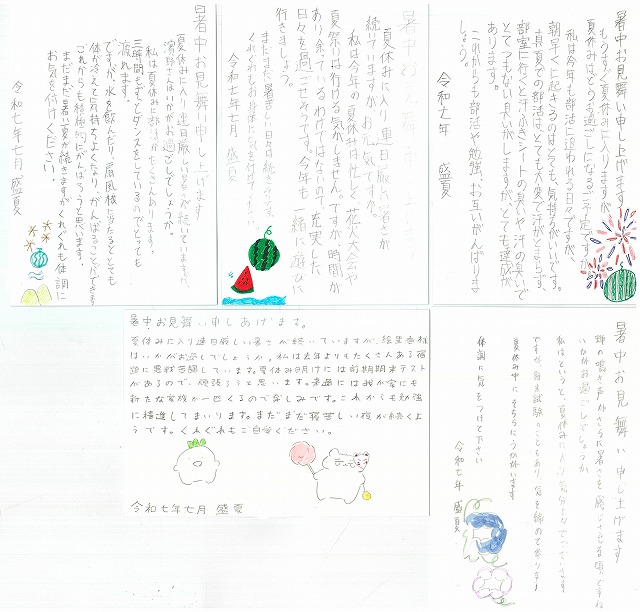 暑中お見舞い申し上げます
もうすぐ夏休みに入りますが、
夏休みはどうお過ごしになるご予定ですか。
私は今年も部活に追われる日々ですが、
朝早くに起きるのはとても気持ちがいいです。
真夏での部活はとても大変で汗がとまらず、
部室に行くと汗ふきシートの臭いや汗の臭いで
とてつもない臭いがしますが、とても達成が
あります。
これからも部活や勉強、お互いがんばりま
しょう。
令和七年 盛夏
暑中お見舞い申し上げます
夏休みに入り連日厳しい暑さが
続いていますがお元気ですか。
私は今年の夏休みは忙しく花火大会や
夏祭りは行ける気がしません。ですが、時間が
あり余っているわけではないので充実した
日々を過ごせそうです。今年も一緒に遊びに
行きましょう。
まだまだ暑苦しい日々は続きそうです。
くれぐれもお身体に気を付けて下さい。
令和七年七月 盛夏
暑中お見舞い申し上げます
夏休みに入り連日厳しい暑さが続いていますが、
はいかがお過ごしでしょうか。
私は夏休みに部活がたくさんあります。
三時間もずっとダンスをしているのでとっても
疲れます。
ですが、水を飲んだり、扇風機に当たるととても
体が冷えて気持ちよくなり、がんばることができます。
これからも積極的にがんばろうと思います。
まだまだ暑い夏が続きますがくれぐれも体調に
お気を付けください。
令和七年七月 盛夏
暑中お見舞い申しあげます。
夏休みに入り連日厳しい暑さが続いていますが、
はいかがお過しでしょうか。私は去年よりもたくさんある宿
題に悪戦苦闘しています。夏休み明けには前期期末テスト
があるので、頑張ろうと思います。来週には我が家にも
新たな家族が一匹くるので楽しみです。これからも勉強
に精進してまいります。まだまだ寝苦しい夜が続くよ
うです。くれぐれもご自愛ください。
令和七年七月 盛夏
暑中お見舞い申し上げます
蝉の鳴き声からさらに暑さを感じさせる頃ですが
いかがお過ごしでしょうか
私はというと、夏休みに入り
ですが期末試験のこともあり気を緩めて居ります
夏休み中にそちらにうかがいます
体調に気をつけて下さい
令和七年 盛夏